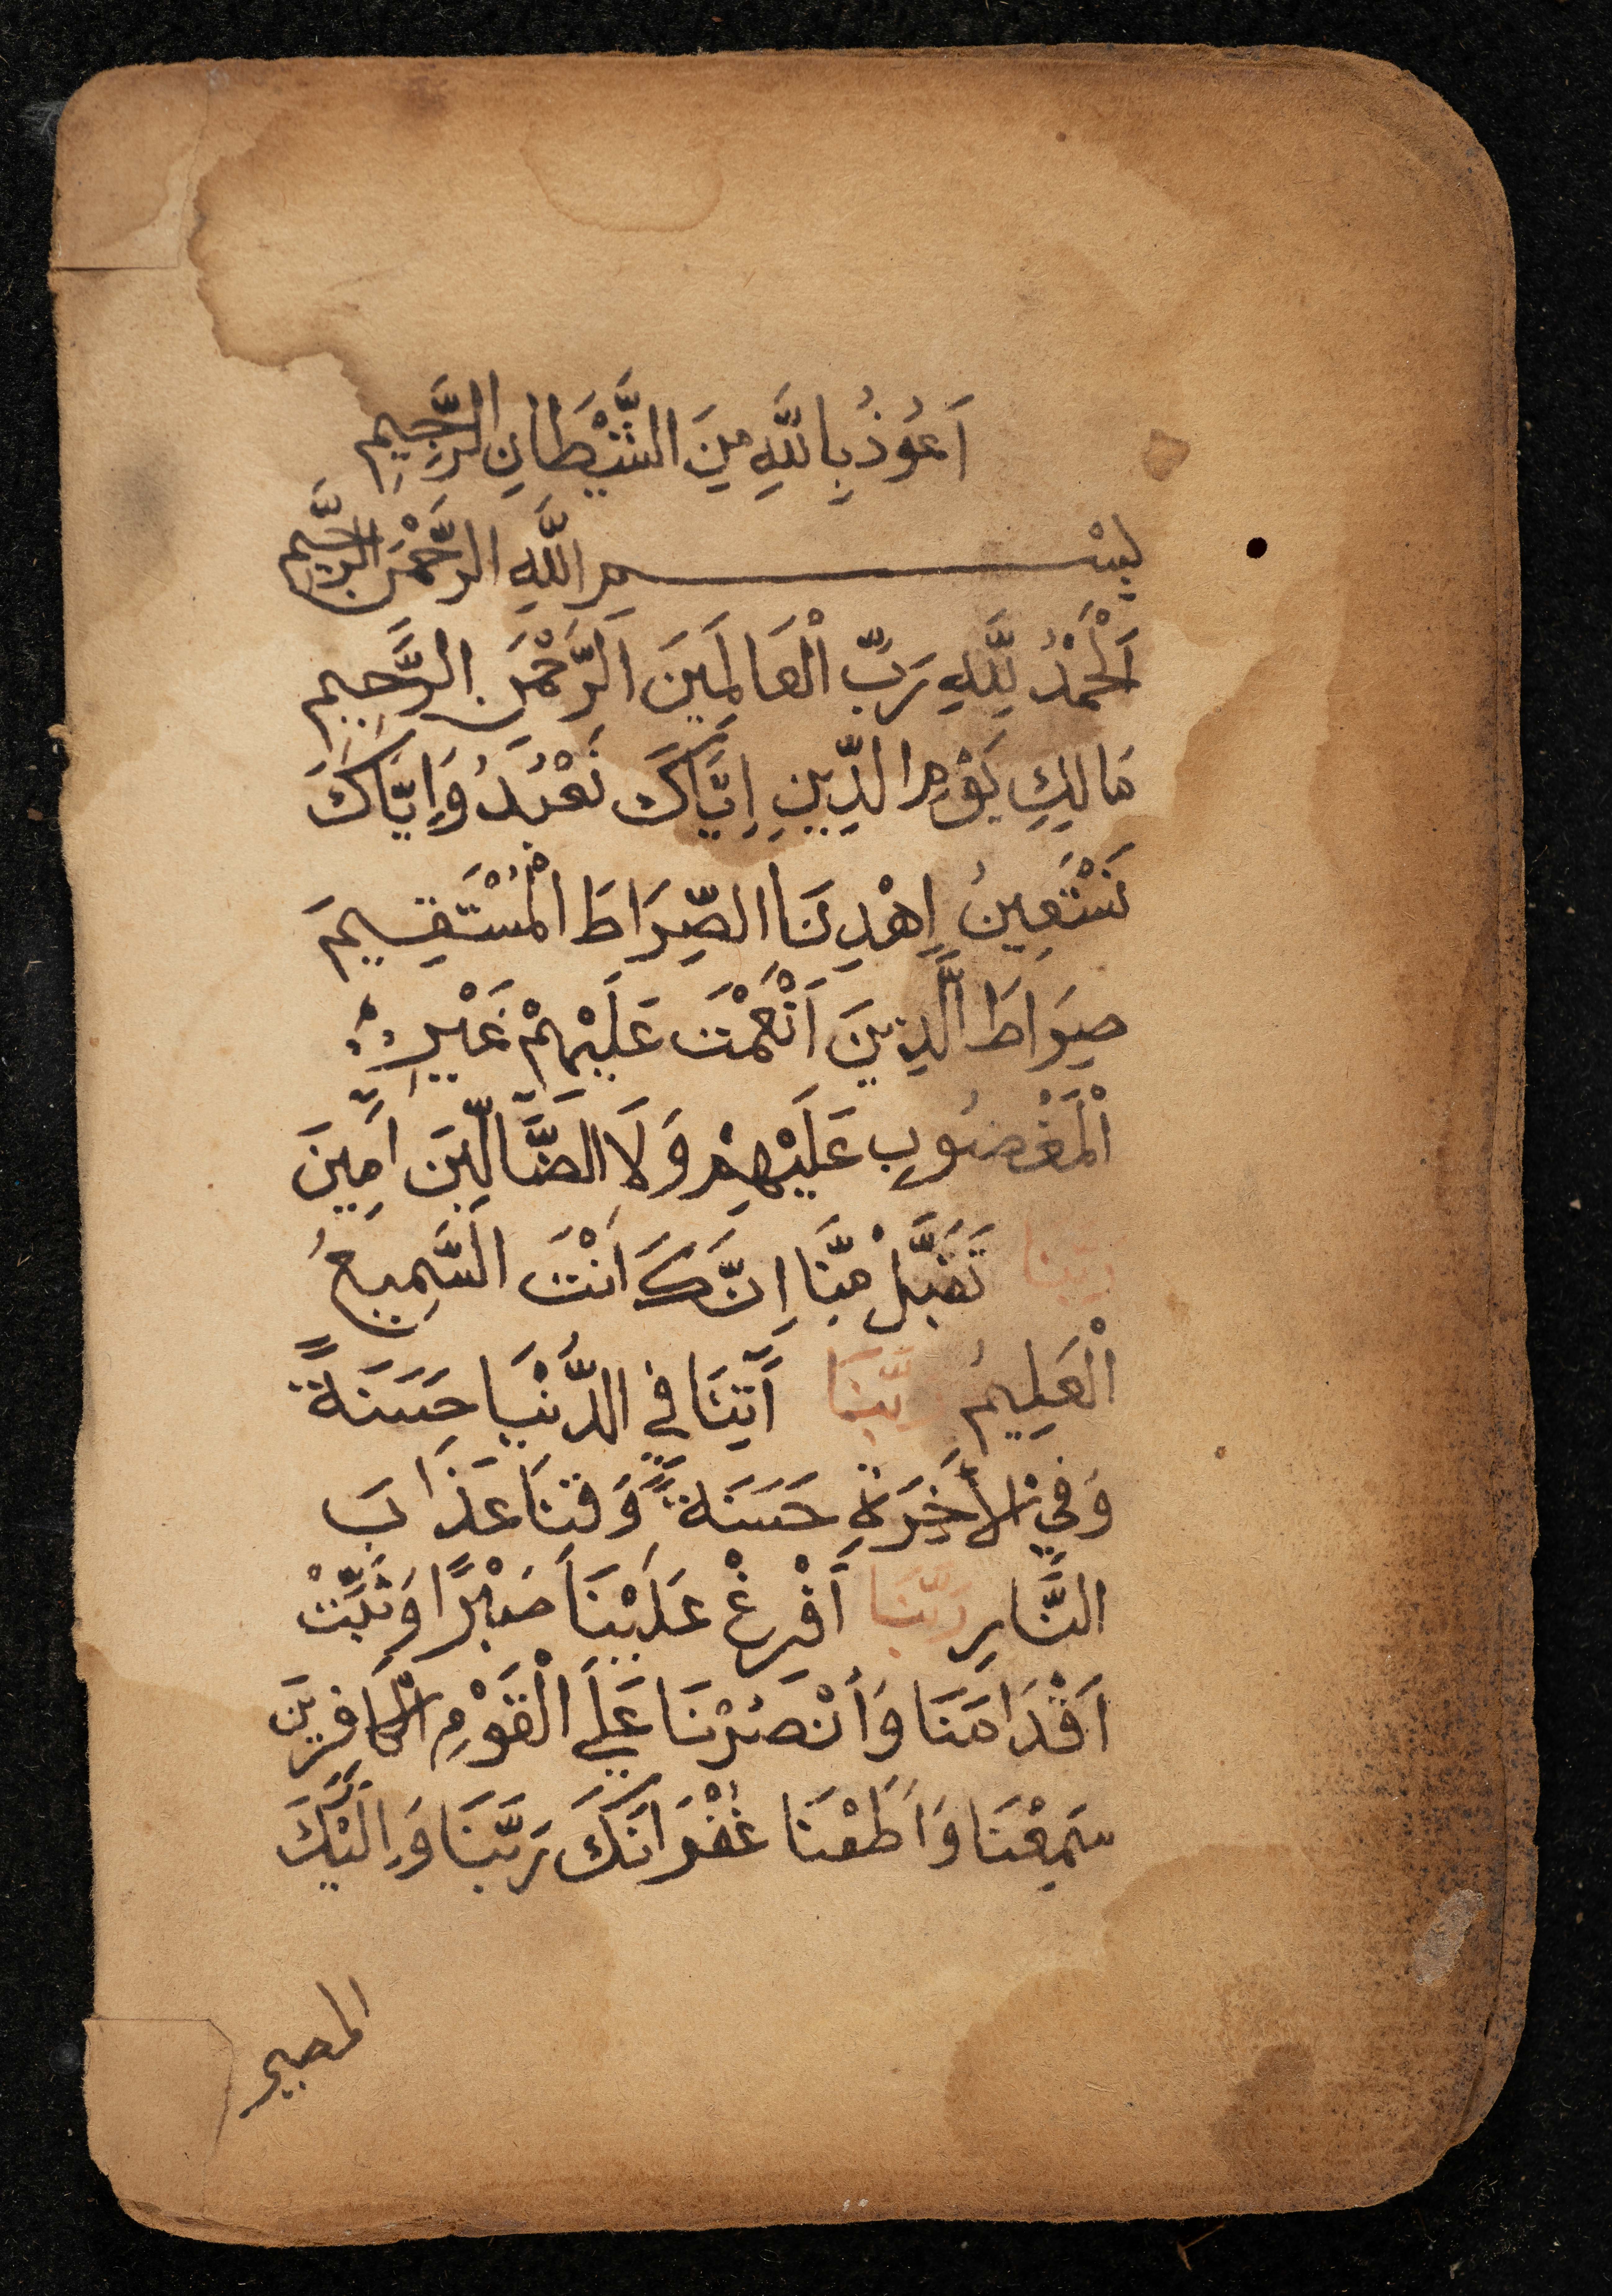 اَعُوذُ بِاللَّهِ مِنَ الشَّيْطَانِ الرَّجِيمِ
بِسْمِ اللَّهِ الرَّحْمٰنِ الرَّحِيمِ
اَلْحَمْدُ لِلَّهِ رَبِّ الْعَالَمِينَ اَلرَّحْمَنِ الرَّحِيمِ
مَالِكِ يَوْمِ الدِّينِ اِيَّاكَ نَعْبُدُ وَاِيَّاكَ
نَسْتَعِينُ اِهْدِنَا الصِّرَاطَ الْمُسْتَقِيمَ
صِرَاطَ الَّذِينَ اَنْعَمْتَ عَلَيْهِمْ غَيْرِ
الْمَغْضُوبِ عَلَيْهِمْ وَلَا الضَّآلِّينَ اٰمِينَ
رَبَّنَا تَقَبَّلْ مِنَّا اِنَّكَ اَنْتَ السَّمِيعُ
الْعَلِيمُ رَبَّنَا آَتِنَا فِي الدُّنْيَا حَسَنَةً
وَفِي الْأَخِرَةِ حَسَنَةً وَقِنَا عَذَابَ
النَّارِ رَبَّنَا أَفْرِغْ عَلَيْنَا صَبْرًا وَثَبِّتْ
اَقْدَامَنَا وَانْصُرْنَا عَلَي الْقَوْمِ الْكَافِرِينَ
سَمِعْنَا وَاَطَعْنَا غُفْرَانَكَ رَبَّنَا وَاِلَيْكَ
المصير